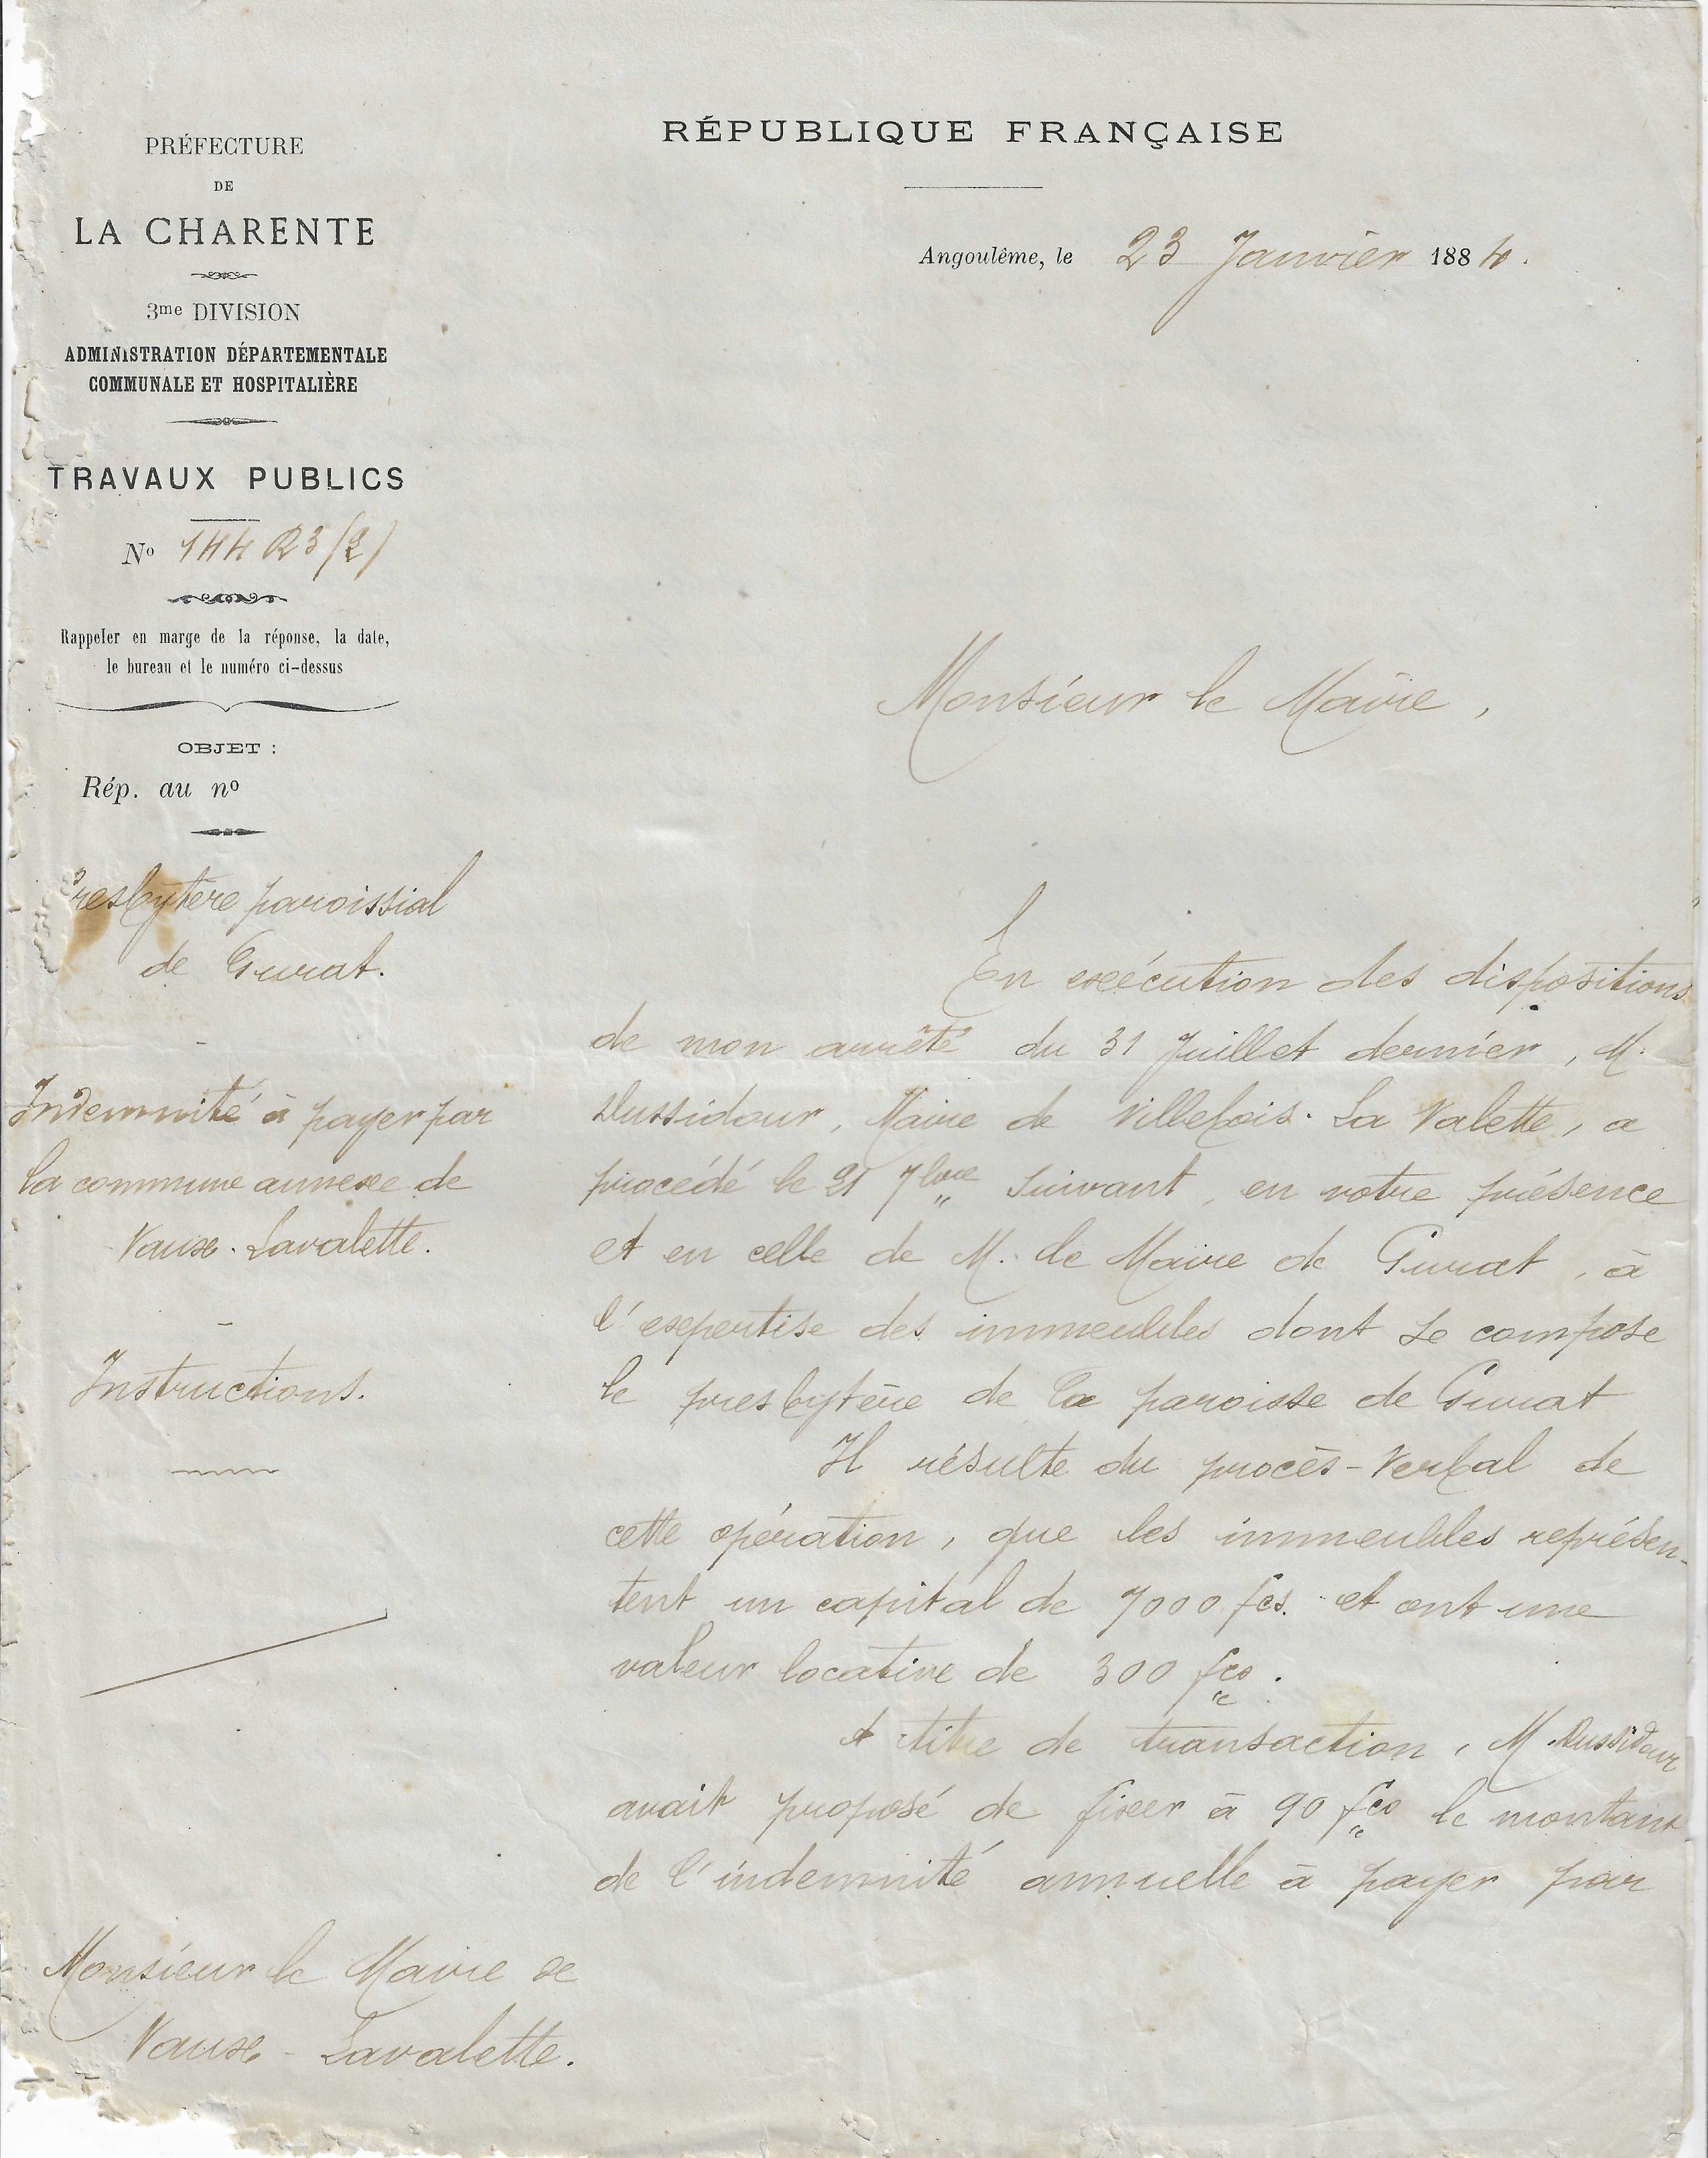 PRÉFECTURE
DE
LA CHARENTE
3me DIVISION
ADMINISTRATION DÉPARTEMENTALE
COMMUNALE ET HOSPITALIÈRE
TRAVAUX PUBLICS
No 144 R3 (2)
Rappeler en marge de la réponse, la date,
le bureau et le numéro ci-dessus
OBJET :
Rép. au no
Presbytère paroissial
de Gurat.
Indemnité à payer par
la commune annexe de
Vaux-Lavalette.
Instructions.
RÉPUBLIQUE FRANÇAISE
Angoulême, le 23 Janvier 1884.
Monsieur le Maire,
En exécution des dispositions
de mon arrêté du 31 Juillet dernier, M.
Dussidour, Maire de Villebois-La Valette, a
procédé le 21 7bre suivant, en votre présence
et en celle de M. le Maire de Gurat, à
l'expertise des immeubles dont se compose
le presbytère de la paroisse de Gurat
Il résulte du procès-Verbal de
cette opération, que les immeubles représen-
tent un capital de 7000 fcs. et ont une
valeur locative de 300 fcs.
A titre de transaction, M. Dussidour
avait proposé de fixer à 90 fcs le montant
de l'indemnité annuelle à payer par
Monsieur le Maire de
Vaux-Lavalette.